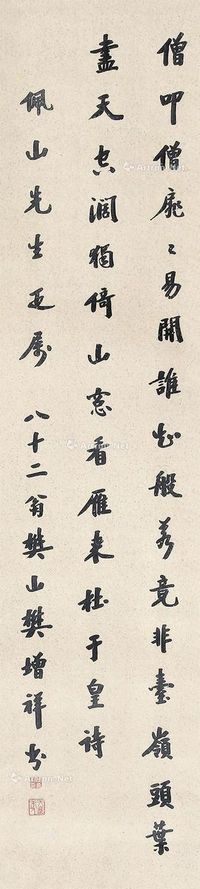 僧叩僧扉〻易開誰知般若竟非臺嶺頭葉
盡天空濶獨倚山窓看雁來杜于皇詩
佩山先生正属 八十二翁樊山樊增祥书